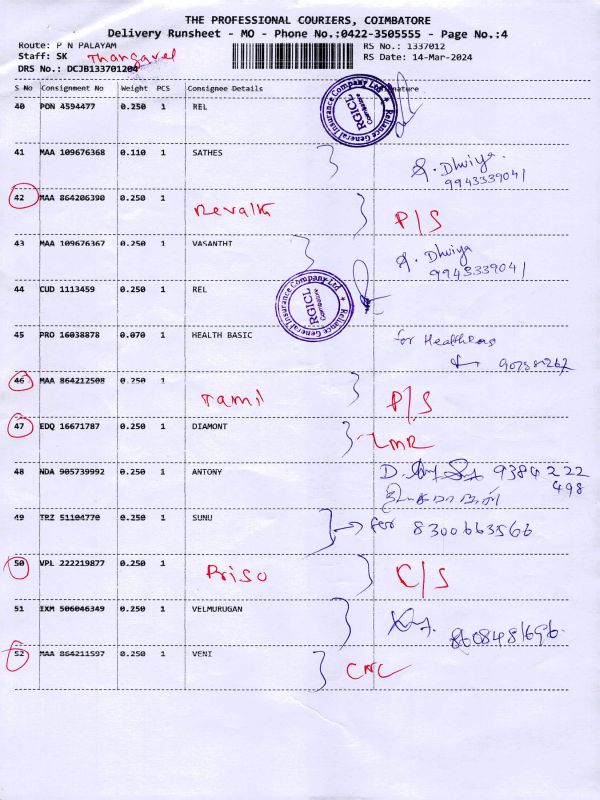 THE PROFESSIONAL COURIERS, COIMBATORE
Delivery Runsheet - MO - Phone No.:0422-3505555 - Page No.:4
Route: P N PALAYAM RS No.: 1337012
Staff: SK Thangavel RS Date: 14-Mar-2024
DRS No.: DCJB133701204
S No Consignment No Weight PCS Consignee Details Signature
40 PON 4594477 0.250 1 REL
Reliance General Insurance Company Ltd. RGICL Coimbatore
41 MAA 109676368 0.110 1 SATHES
Dhivya
9943339041
42 MAA 864206390 0.250 1 Revathi P/S
43 MAA 109676367 0.250 1 VASANTHI
Dhivya
9943339041
44 CUD 1113459 0.250 1 REL
Reliance General Insurance Company Ltd. RGICL Coimbatore
45 PRO 16038878 0.070 1 HEALTH BASIC for
46 MAA 864212508 0.250 1 Tamil P/S
47 EDQ 16671787 0.250 1 DIAMONT LMR
48 NDA 905739992 0.250 1 ANTONY D. 9384222
498
49 TRZ 51104770 0.250 1 SUNU for 8300663566
50 VPL 222219877 0.250 1 Priso C/S
51 IXM 506046349 0.250 1 VELMURUGAN
52 MAA 864211597 0.250 1 VENI CNC